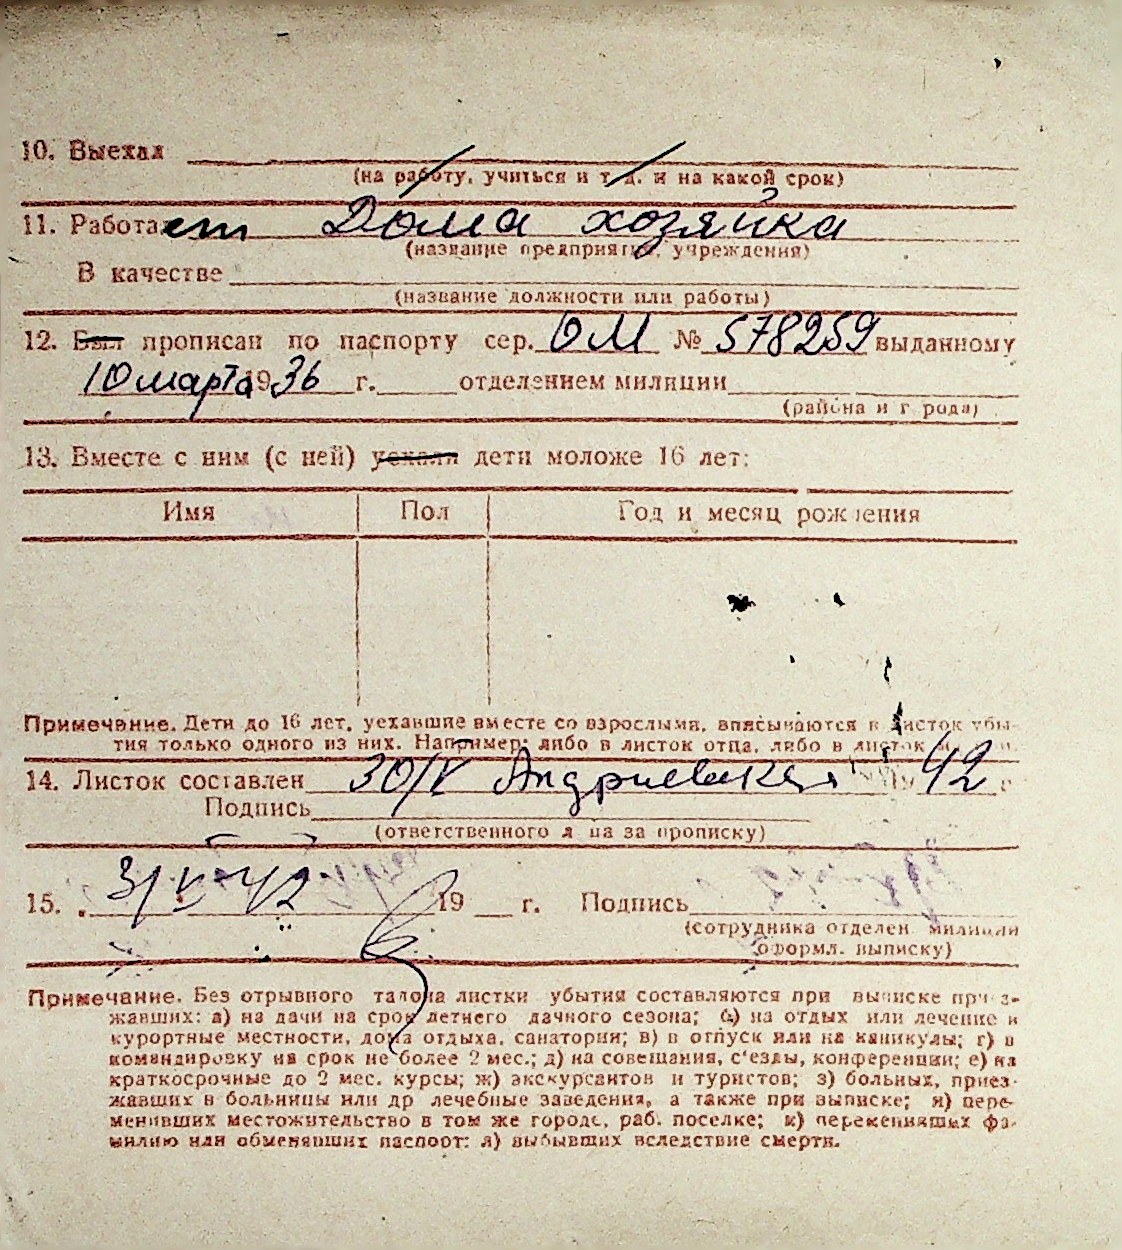 10. Выехал
(на работу, учиться и т. д. и на какой срок)
11. Работает Дома хозяйка
(название предприятия, учреждения)
В качестве
(название должности или работы)
12. Был прописан по паспорту сер. ОМ № 578259 выданному
10 марта 1936 г. отделением милиции
(района и города)
13. Вместе с ним (с ней) уехали дети моложе 16 лет:
Имя Пол Год и месяц рождения
Примечание. Дети до 16 лет, уехавшие вместе со взрослыми, вписываются в листок убы-
тия только одного из них. Например: либо в листок отца, либо в листок
14. Листок составлен 30/V Андриевская 42 г.
Подпись
(ответственного лица за прописку)
15. 3/V-42 19 г. Подпись
(сотрудника отделен. милиции
оформл. выписку)
Примечание. Без отрывного талона листки убытия составляются при выписке приез-
жавших: а) на дачи на срок летнего дачного сезона; б) на отдых или лечение в
курортные местности, дома отдыха, санатории; в) в отпуск или на каникулы; г) в
командировку на срок не более 2 мес.; д) на совещания, с'езды, конференции; е) на
краткосрочные до 2 мес. курсы; ж) экскурсантов и туристов; з) больных, приез-
жавших в больницы или др лечебные заведения, а также при выписке; и) пере-
менивших местожительство в том же городе, раб. поселке; к) переменивших фа-
милию или обменявших паспорт: л) выбывших вследствие смерти.